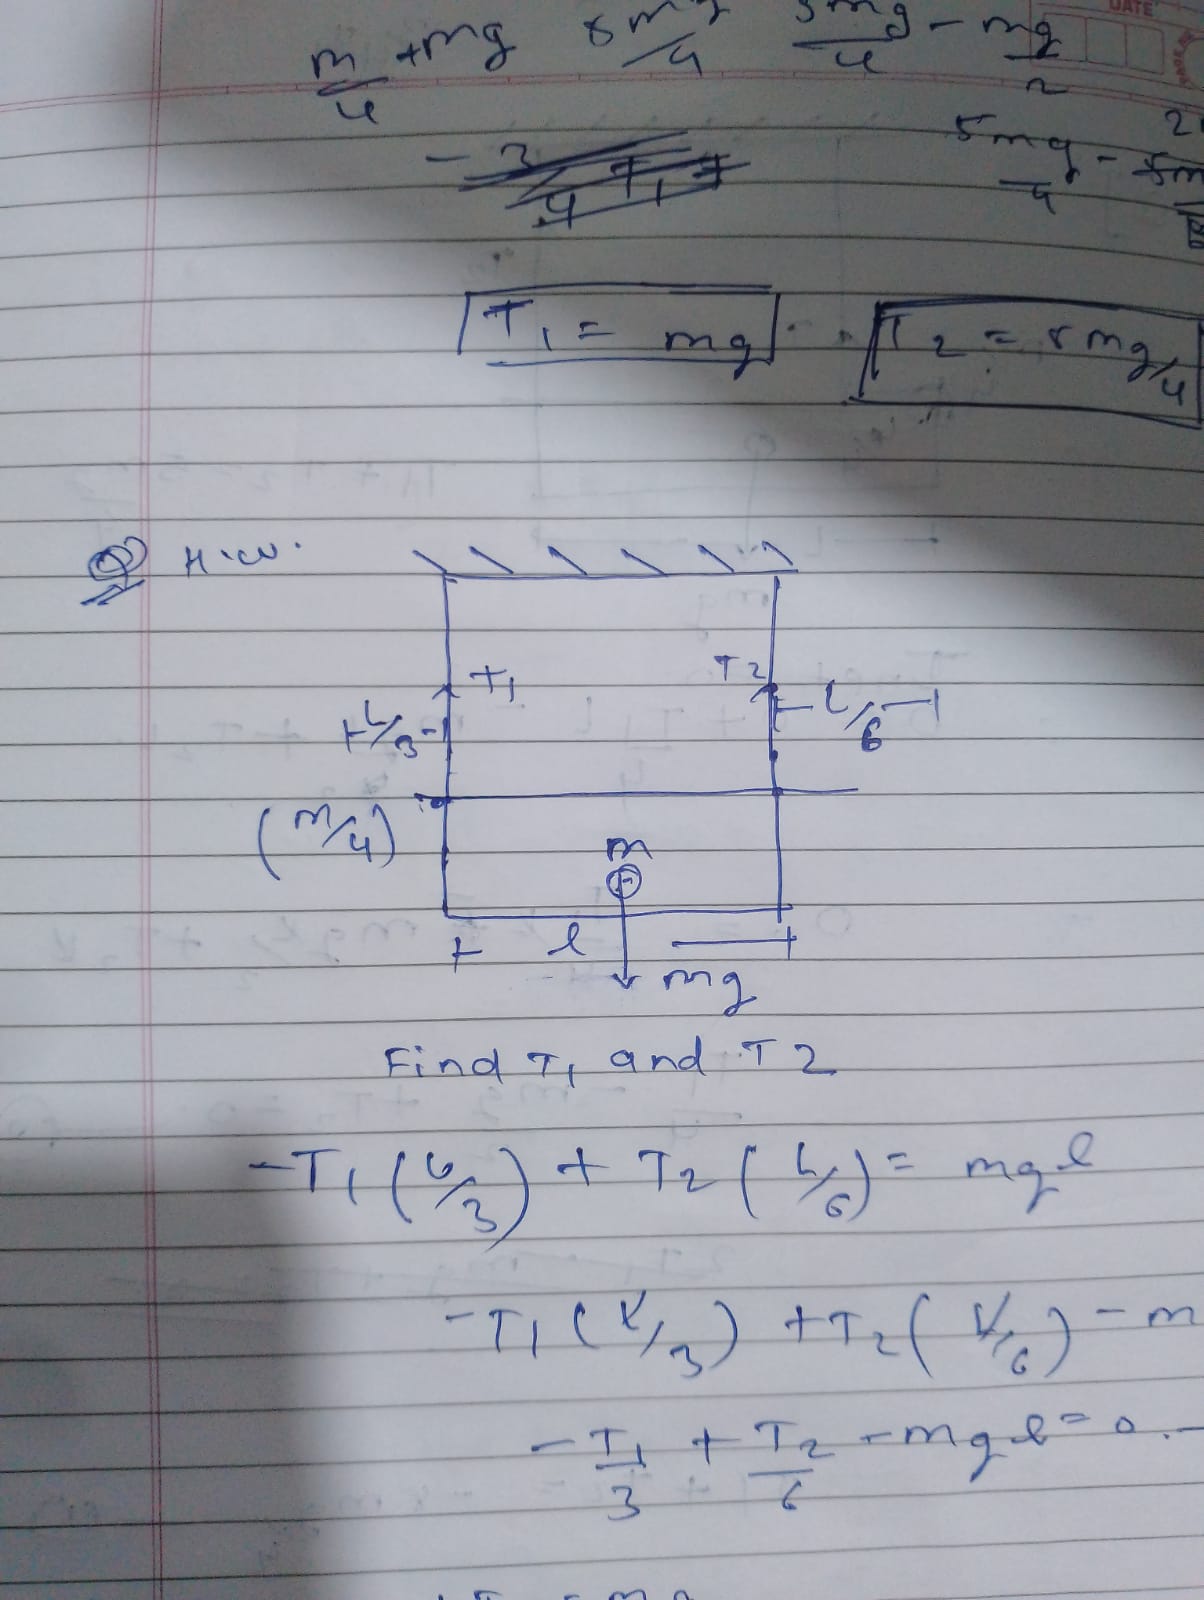 DATE
m/4 + mg 5mg/4 5mg/4 - mg/2
5mg/4 -
T1 = mg T2 = 5mg/4
Q H.W.
T1 T2
L/3 L/6
(m/4)
m
l
mg
Find T1 and T2
-T1 (L/3) + T2 (L/6) = mgl
-T1 (L/3) + T2 (L/6) - m
-T1/3 + T2/6 - mgl = 0